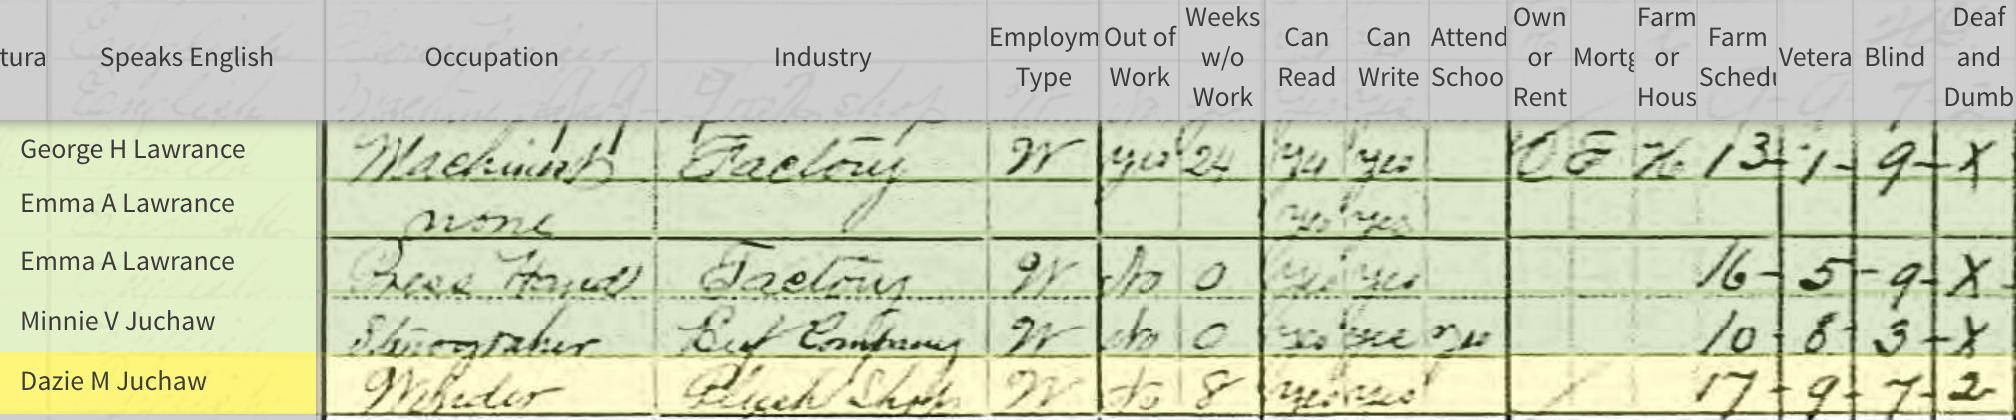 tura Speaks English Occupation Industry Employm Type Out of Work Weeks w/o Work Can Read Can Write Attend Schoo Own or Rent Mortg Farm or Hous Farm Schedu Vetera Blind Deaf and Dumb
George H Lawrance Machinist Factory W yes 24 yes yes O F H 13 - 1 - 9 - X
Emma A Lawrance none yes yes
Emma A Lawrance Press Hand Factory W No 0 yes yes 16 - 5 - 9 - X
Minnie V Juchaw Stenographer Company W No 0 yes yes no 10 - 8 - 3 - X
Dazie M Juchaw W No 8 yes yes 17 - 9 - 7 - 2